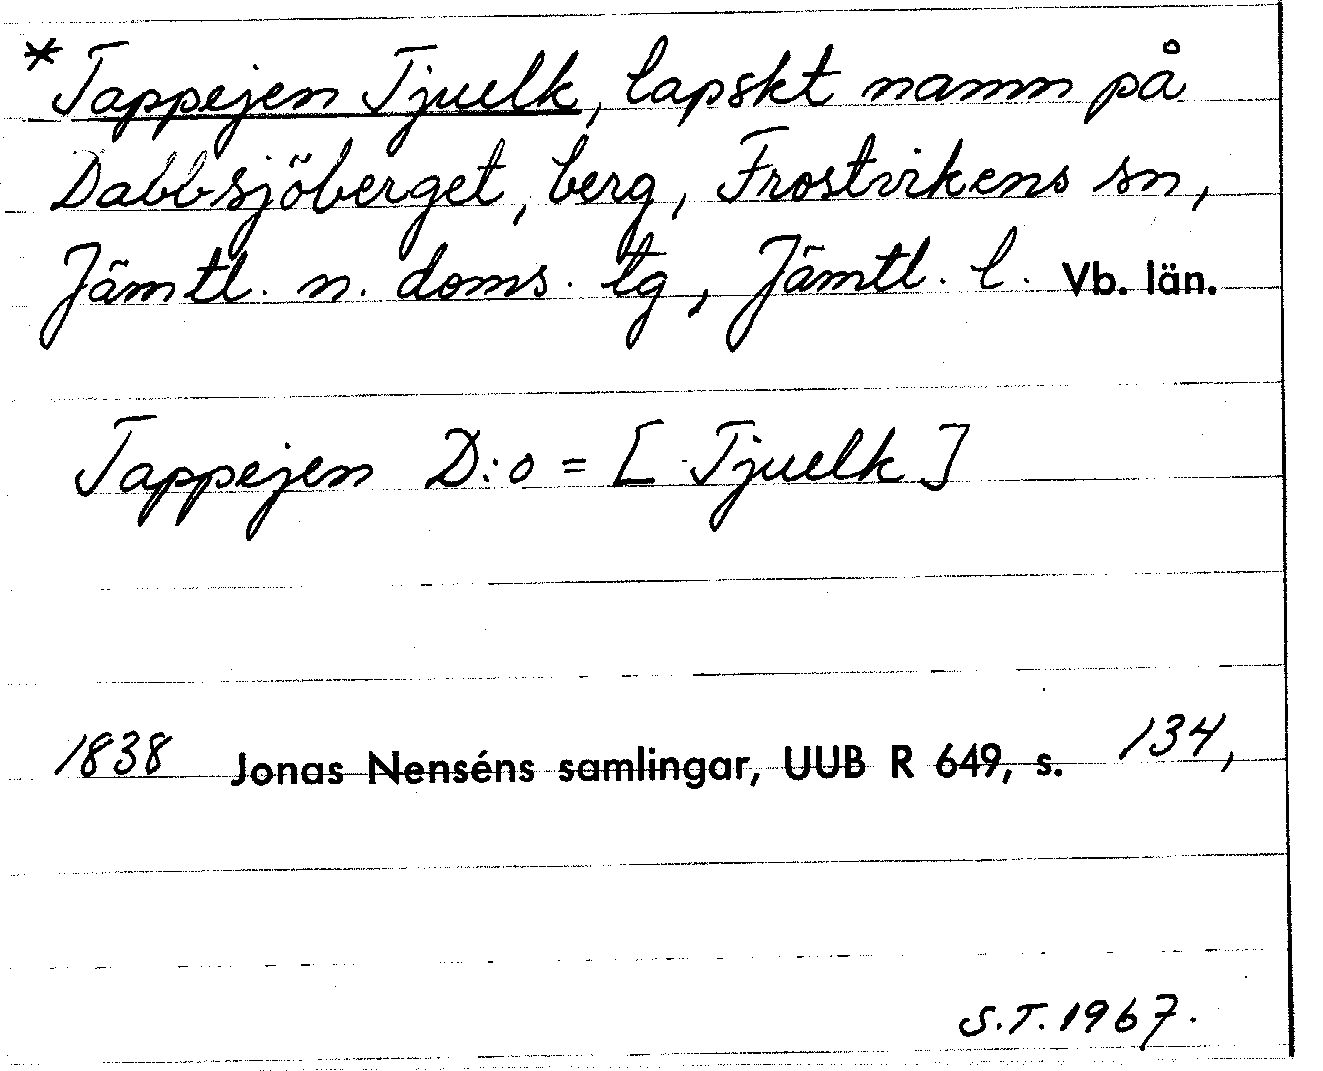 *Tappejen Tjuelk, lapskt namn på
Dabbsjöberget, berg, Frostvikens sn,
Jämtl. n. doms. tg, Jämtl. l. Vb. län.
Tappejen D:o = [Tjuelk]
1838 Jonas Nenséns samlingar, UUB R 649, s. 134,
S.T. 1967.